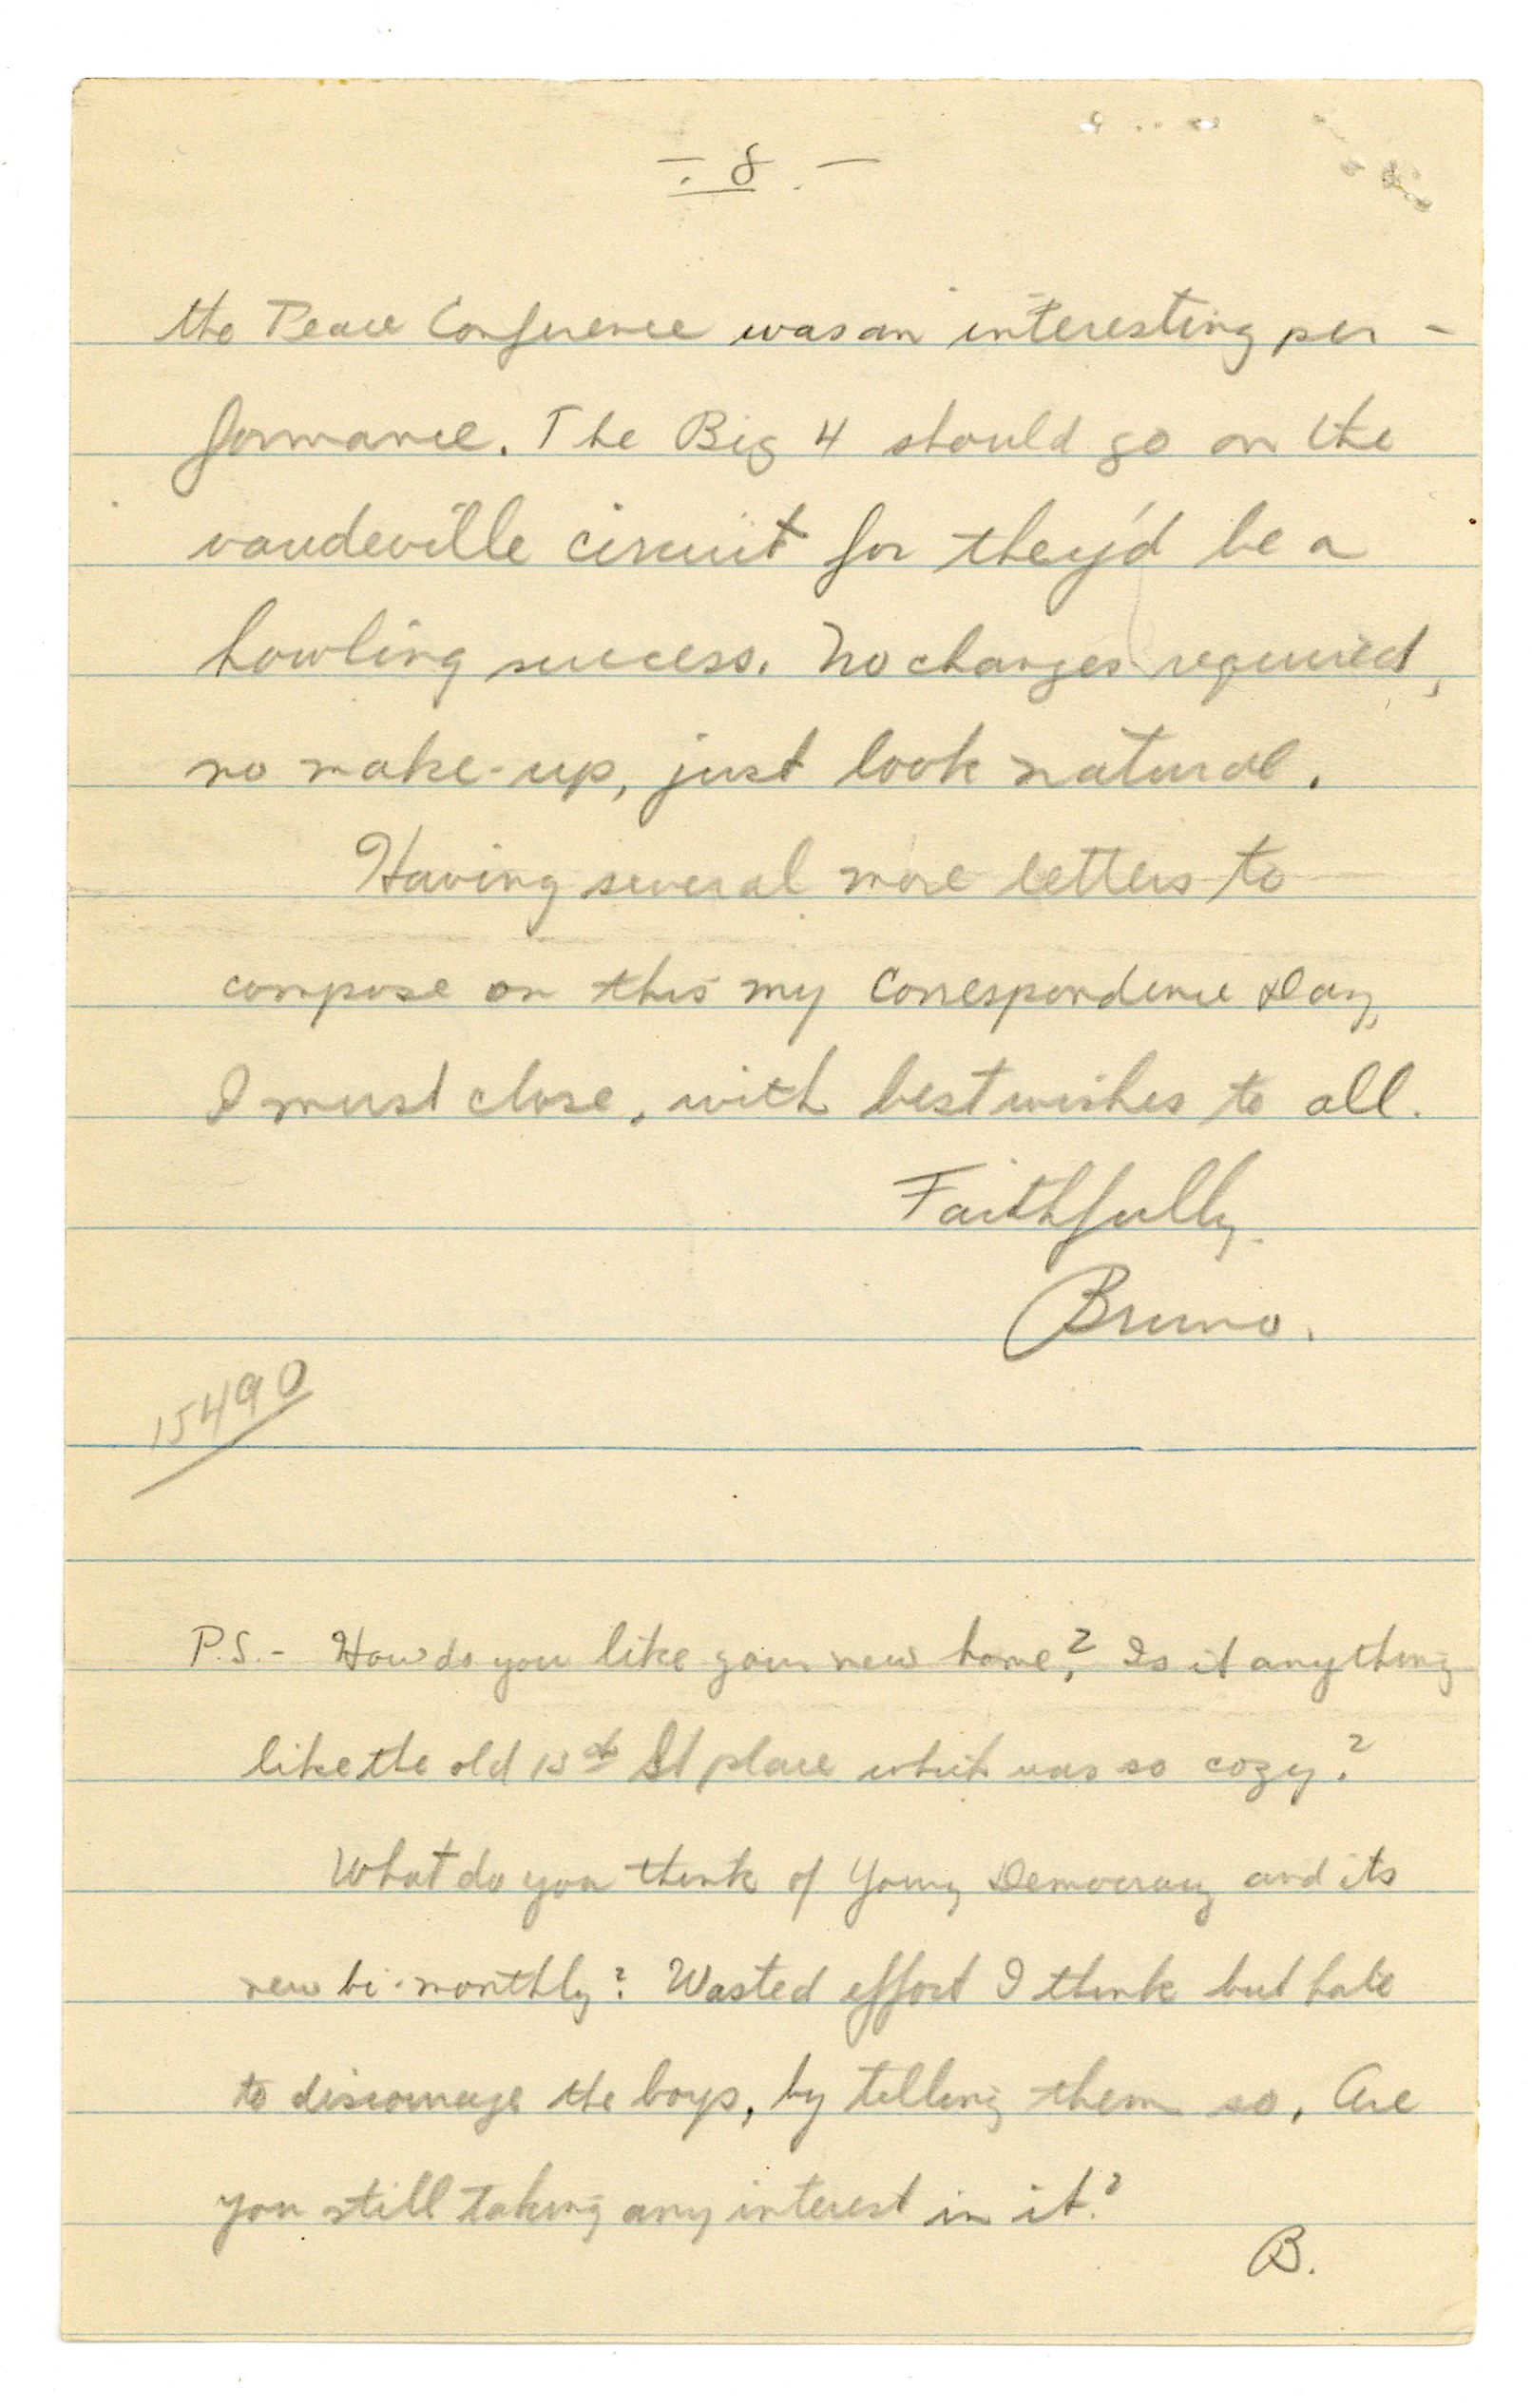 -. 8 .-
the Peace Conference was an interesting per-
formance. The Big 4 should go on the
vaudeville circuit for they'd be a
howling success. No changes required,
no make-up, just look natural.
Having several more letters to
compose on this my Correspondence Day,
I must close, with best wishes to all.
Faithfully
Bruno.
15490
P.S.- How do you like your new home? Is it anything
like the old St place which was so cozy?
What do you think of Young Democracy and its
new bi-monthly? Wasted effort I think but hate
to discourage the boys, by telling them so. Are
you still taking any interest in it?
B.